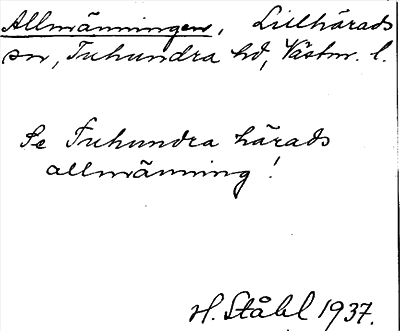 Allmänningen, Lillhärads
sn, Tuhundra hd, Västm. l.
Se Tuhundra härads
allmänning!
H. Ståhl 1937.